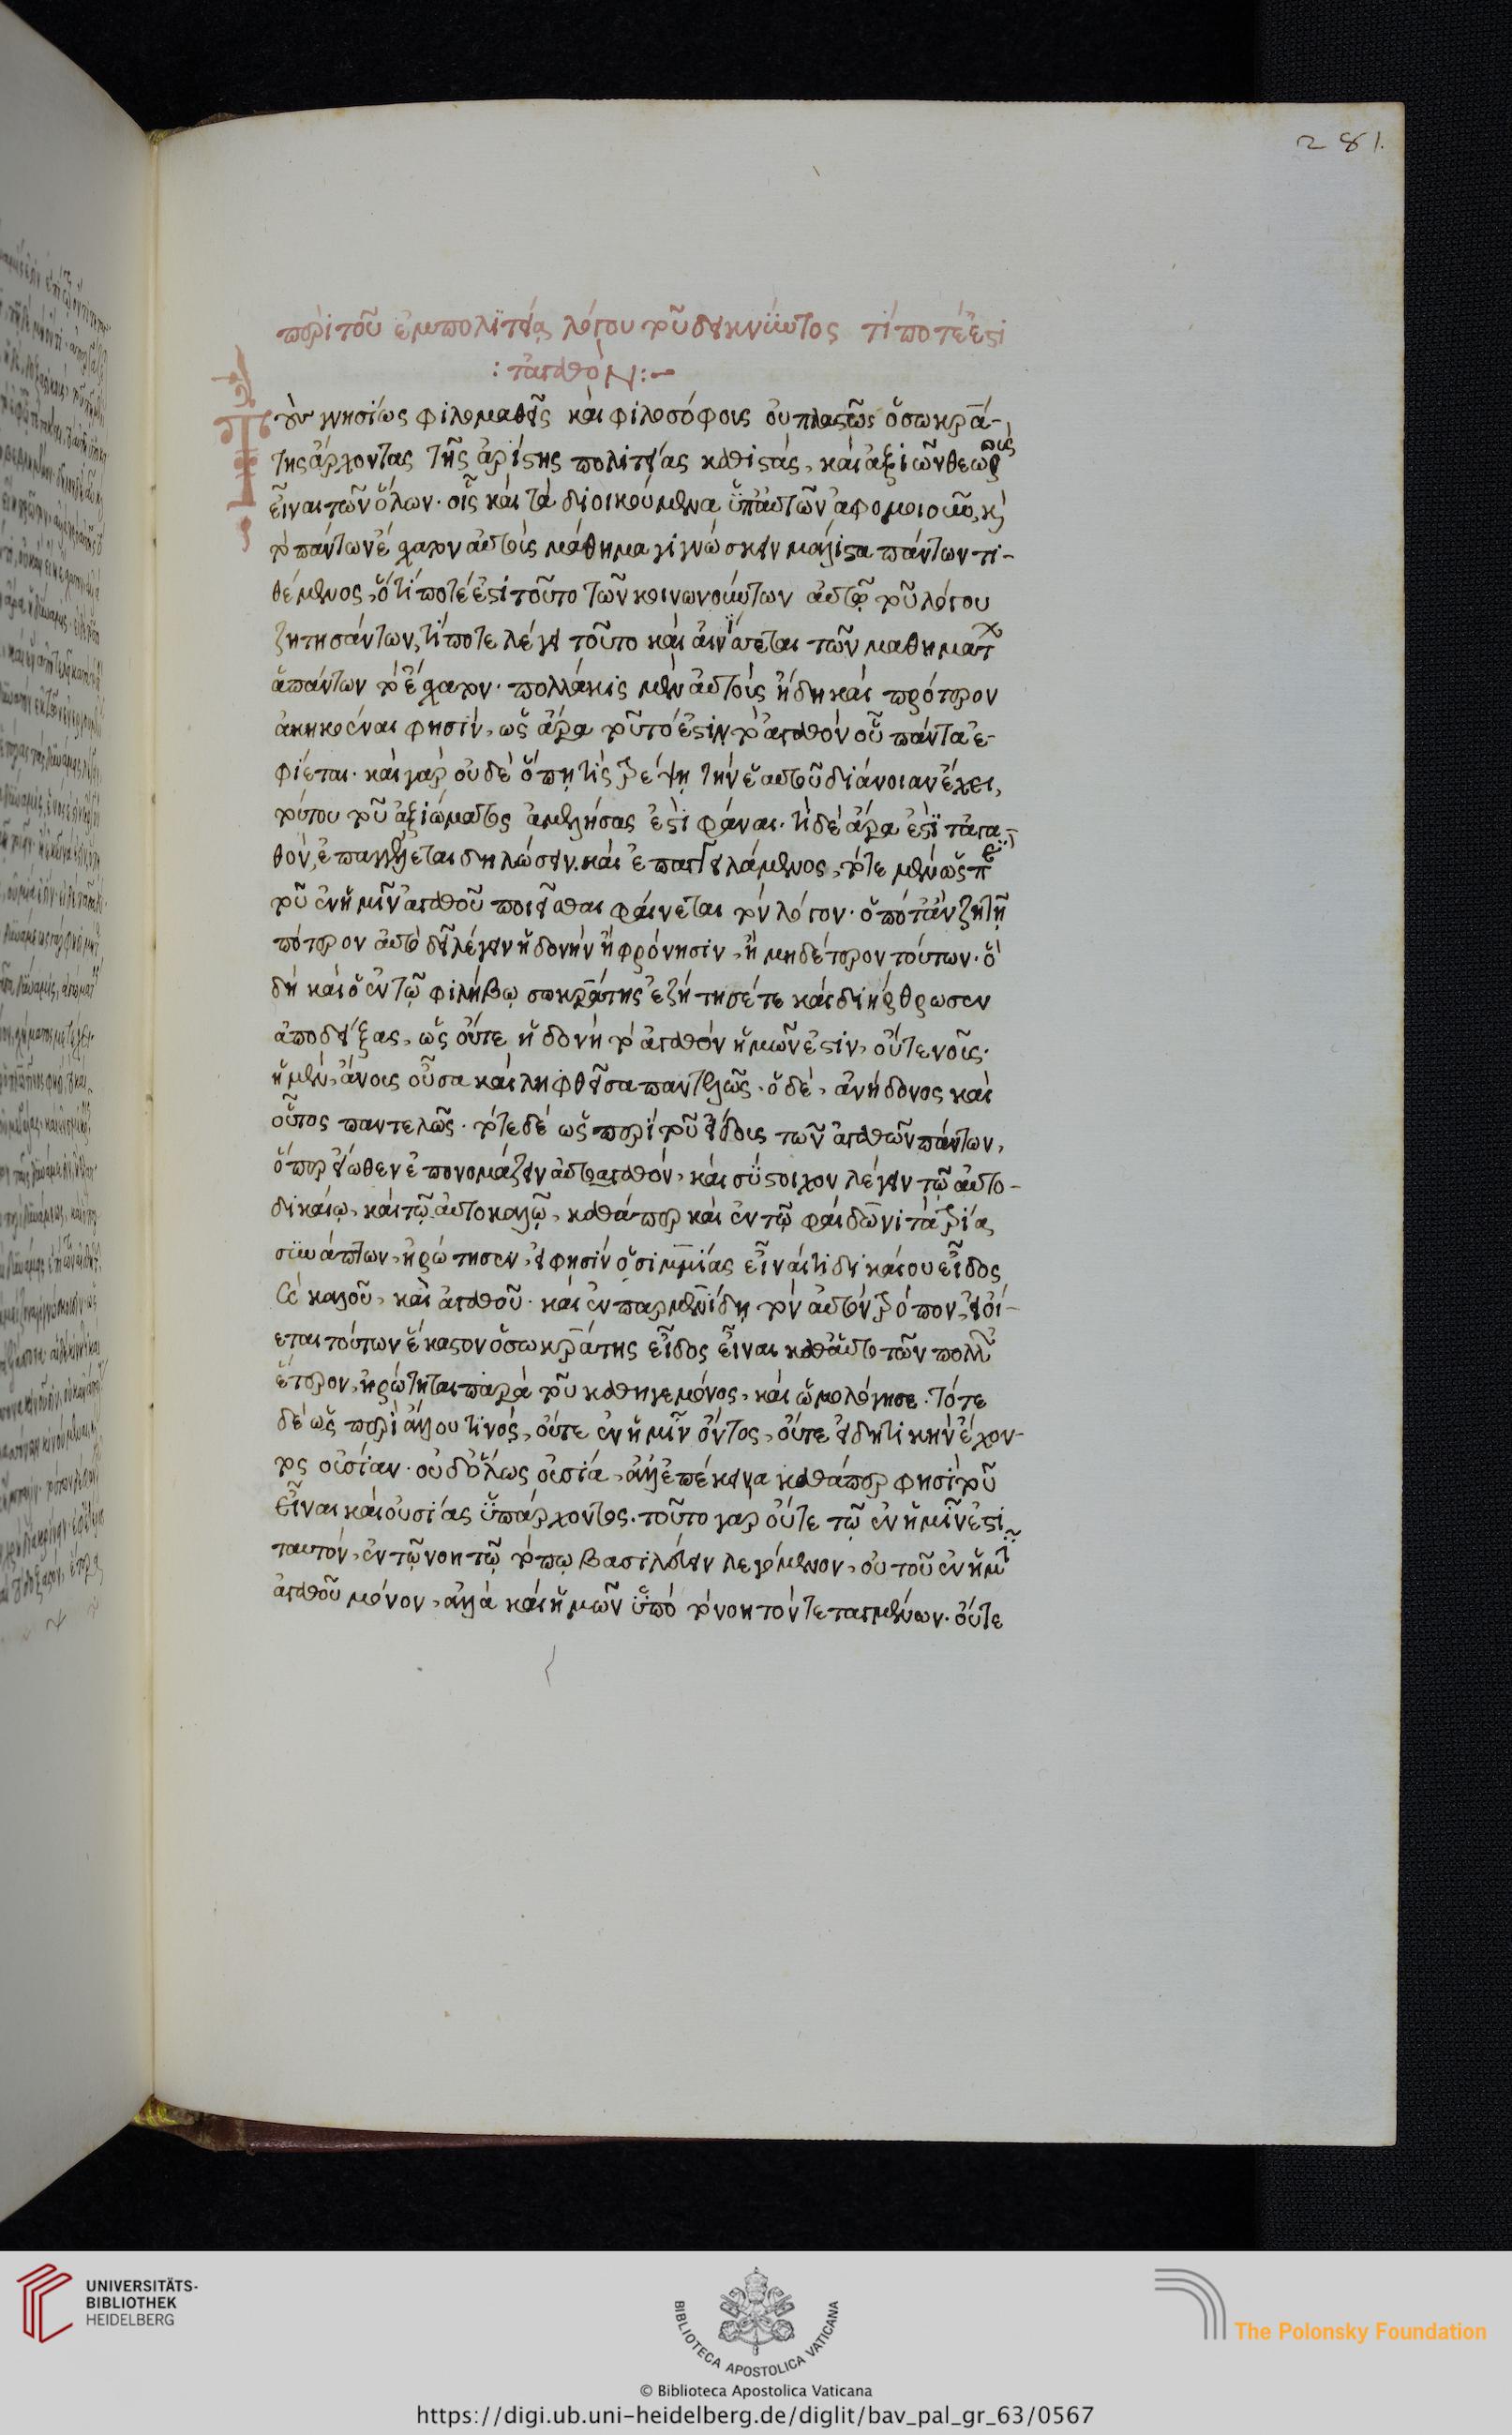 281.
περὶ τοῦ ἐμ πολιτείας λόγου τοῦ δεικνύντος τί ποτέ ἐστι
: τἀγαθόν :-
Τοὺς γνησίως φιλομαθεῖς καὶ φιλοσόφους οὐ πλαστῶς ὁ σωκρά-
της ἄρχοντας τῆς ἀρίστης πολιτείας καθιστάς, καὶ ἀξιῶν θεωροὺς
εἶναι τῶν ὅλων. οἷς καὶ τὰ διοικούμενα ὑπ' αὐτῶν ἀφομοιοῦν, κὶ
τὸ πάντων ἔσχατον αὐτοῖς μάθημα γιγνώσκειν μάλιστα πάντων τι-
θέμενος, ὅ τί ποτέ ἐστι τοῦτο τῶν κοινωνούντων αὐτῷ τοῦ λόγου
ζητησάντων, τί ποτε λέγει τοῦτο καὶ αἰνίττεται τῶν μαθημάτ
ἁπάντων τὸ ἔσχατον. πολλάκις μὲν αὐτοὺς ἤδη καὶ πρότερον
ἀκηκοέναι φησίν, ὡς ἄρα τοῦτό ἐστιν τὸ ἀγαθὸν οὗ πάντα ἐ-
φίεται. καὶ γὰρ οὐδὲ ὅπῃ τις τρέψῃ τὴν ἑαυτοῦ διάνοιαν ἔχει,
τούτου τοῦ ἀξιώματος ἀμελήσας ἐστὶ φάναι. τί δὲ ἄρα ἐστὶ τἀγα-
θόν, ἐπαγγέλλεται δηλώσειν. καὶ ἐπαγγειλάμενος, τότε μὲν ὡς περ
τοῦ ἐν ἡμῖν ἀγαθοῦ ποιεῖσθαι φαίνεται τὸν λόγον. ὁπόταν ζητῇ
πότερον αὐτὸ δεῖ λέγειν ἡδονὴν ἢ φρόνησιν, ἢ μηδέτερον τούτων. ὃ
δὴ καὶ ὁ ἐν τῷ φιλήβῳ σωκράτης ἐζήτησέ τε καὶ διήρθρωσεν
ἀποδείξας, ὡς οὔτε ἡδονὴ τὸ ἀγαθὸν ἡμῶν ἐστιν, οὔτε νοῦς.
ἡ μὲν, ἄνους οὖσα καὶ ληφθεῖσα παντελῶς. ὁ δὲ, ἀνήδονος καὶ
οὗτος παντελῶς. τότε δὲ ὡς περὶ τοῦ εἴδους τῶν ἀγαθῶν πάντων,
ὅπερ εἴωθεν ἐπονομάζειν αὐτοαγαθόν, καὶ σύστοιχον λέγειν τῷ αὐτο-
δικαίῳ, καὶ τῷ αὐτοκαλῷ, καθάπερ καὶ ἐν τῷ φαίδωνι τὰ τρία
συνάπτων, ἠρώτησεν, εἰ φησὶν ὁ σιμμίας εἶναί τι δικαίου εἶδος
καὶ καλοῦ, καὶ ἀγαθοῦ. καὶ ἐν παρμενίδῃ τὸν αὐτὸν τρόπον, εἰ οἴ-
εται τούτων ἕκαστον ὁ σωκράτης εἶδος εἶναι καθ' αὑτὸ τῶν πολλῶν
ἕτερον, ἠρώτηται παρὰ τοῦ καθηγεμόνος, καὶ ὡμολόγησε. τότε
δὲ ὡς περὶ ἄλλου τινός, οὔτε ἐν ἡμῖν ὄντος, οὔτε εἰδητικὴν ἔχον-
τος οὐσίαν. οὐδ' ὅλως οὐσία, ἀλλ' ἐπέκεινα καθάπερ φησὶ τοῦ
εἶναι καὶ οὐσίας ὑπάρχοντος. τοῦτο γὰρ οὔτε τῷ ἐν ἡμῖν ἐστι
ταυτόν, ἐν τῷ νοητῷ τόπῳ βασιλεύειν λεγόμενον, οὐ τοῦ ἐν ἡμῖν
ἀγαθοῦ μόνον, ἀλλὰ καὶ ἡμῶν ὑπὸ τὸ νοητὸν τεταγμένων. οὔτε
UNIVERSITÄTS-
BIBLIOTHEK
HEIDELBERG
BIBLIOTECA APOSTOLICA VATICANA
The Polonsky Foundation
© Biblioteca Apostolica Vaticana
https://digi.ub.uni-heidelberg.de/diglit/bav_pal_gr_63/0567